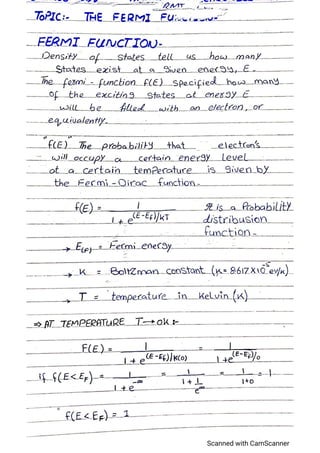 TOPIC:- THE FERMI
FERMI FUNCTION-
Density of states tell us how many
States exist at a given energy, E.
The fermi - function F(E) specified how many
of the exciting states at energy E
will be filled with an electron, or
equivalently.
"f(E)" The probability that electron's
will occupy a certain energy level
at a certain temperature is given by
the Fermi-Dirac function.
f(E) = 1 / 1 + e^(E-EF)/KT It is a Probability
distribusion
function.
→ E(F) = Fermi energy
→ K = Boltzman constant (K= 8.617X10^-5 ev/k)
→ T = temperature in Kelvin (K)
⇒ AT TEMPERATURE T→0k :-
F(E) = 1 / 1 + e^(E-EF)/K(0) = 1 / 1 + e^(E-EF)/0
if f(E<EF) = 1 / 1 + e^-∞ = 1 / 1 + 1/e^∞ = 1 / 1+0 = 1
f(E < EF) = 1
Scanned with CamScanner